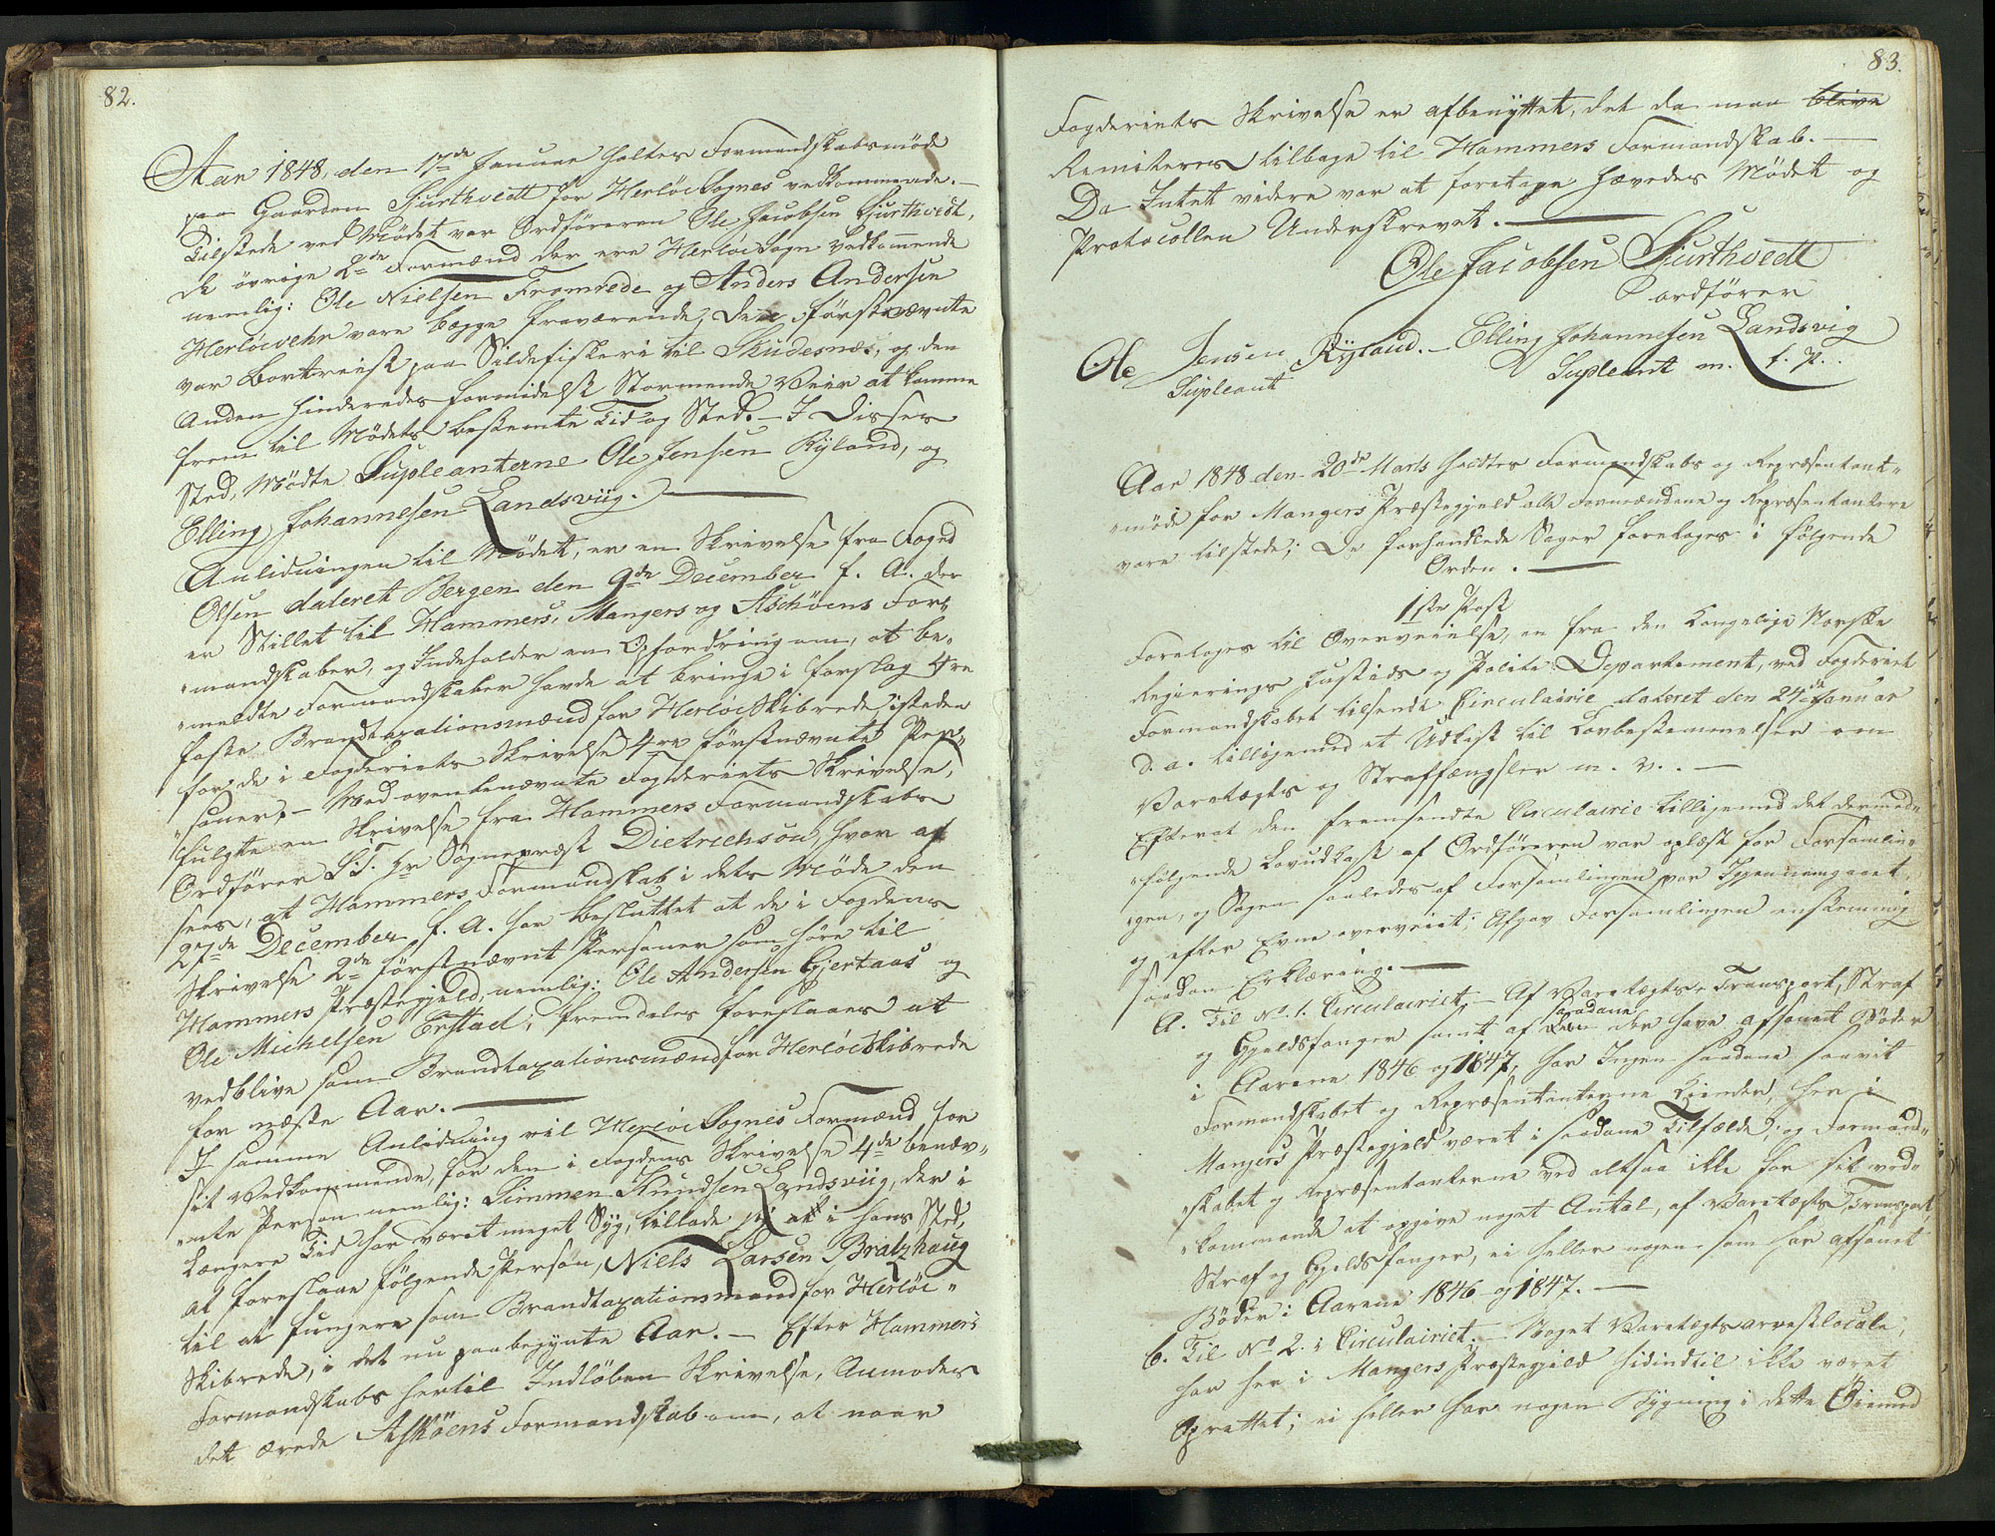 82.
Aar 1848, den 17de Januar holtes Formandskabsmöde
paa Gaarden Sjurthvedt for HerlöeSognes vedkommende. –
Tilstede ved Mödet var Ordföreren Ole Jacobsen Sjurthvedt,
de övrige 2de Formænd der ere HerlöeSogn Vedkommende
nemlig: Ole Nielsen Fromrede og Anders Andersen
Herlöevehr vare begge fraværende, den förstnævnte
var Bortreist paa Sildefiskeri til Skudesnæs, og den
Anden hinderedes formidelst Stormende Veir at komme
frem til Mödets bestemte Tid og Sted. – I Disses
Sted, Mödte Supleanterne Ole Jensen Ryland, og
Elling Johannesen Landsviig. –
Anlidningen til Mödet, er en Skrivelse fra Foged
Olsen dateret Bergen den 9de December f. A. der
er Stillet til Hammers, Mangers og Askhöens For„
„mandskaber, og Indeholder en Opfordring om, at be„
„meldte Formandskaber havde at bringe i Forslag 4re
faste Brandtaxationsmænd for HerlöeSkibrede, isteden
for de i Fogderiets Skrivelse 4re förstnævnte Per„
„soner, – Med ovenbenævnte Fogderiets Skrivelse,
fulgte en Skrivelse fra Hammers Formandskabs
Ordförer S.T. Hr Sognepræst Dietrichson, hvor af
sees, at Hammers Formandskab i dets Möde den
27de December f. A. har besluttet at de i Fogdens
Skrivelse 2de förstnævnt Personer som höre til
Hammers Præstegjeld, nemlig: Ole Andersen Gjertaas og
Ole Michelsen Erstad, fremdeles foreslaaes at
vedblive som Brandtaxationsmænd for HerlöeSkibrede
for næste Aar. –
I samme Anlidning vil Herlöe Sognes Formænd for
sit Vedkommende, for den i Fogdens Skrivelse 4de benæv„
„nte Person nemlig: Simmen Knudsen Landsviig, der i
Længere Tid har været meget Syg, tillade sig at i hans Sted,
at foreslaae fölgende Person, Niels Larsen Bratzhaug
til at fungere som Brandtaxationsmand for Herlöe„
Skibrede, i det nu paabegynte Aar. – Efter Hammers
Formandskabs hertil Indlöben Skrivelse, Anmodes
det ærede Asköens Formandskab om, at naar
83.
Fogderiets Skrivelse er afbenyttet, det da maa blive
Remiteres tilbage til Hammers Formandskab. –
Da Intet videre var at foretage hævedes Mödet og
Protocollen Underskrevet. –
Ole Jacobsen Sjurthvedt
ordförer
Ole Jensen Ryland. – Elling Johannesen Landsvig
Supleant Supleant m. f. P..
Aar 1848 den 20de Marts holdtes Formandskabs og Repræsentant„
„möde for Mangers Præstegjeld alle Formændene og Repræsentantere
vare tilstede; De forhandlede Sager foretoges i fölgende
Orden. –
1ste Post
Foretoges til Overveielse, en fra den Kongelige Norske
Regierings Justids og Politi Departement, ved Fogderiet
Formandskabet tilsendt Circulairie dateret den 24de Januar
d. a. tilligemed et Udkast til Lovbestemmelser om
Varetægts og Straffængsler m. v. . –
Efterat den fremsendte Circulairie tilligemed det dermed„
„fölgende Lovudkast af Ordföreren var oplæst for Forsamlin„
„gen, og Sagen saaledes af Forsamlingen var Igjennemgaaet,
og efter Evne overveiet; Afgav Forsamlingen enstemmig
saadan Erklæring. –
A. Til No 1. Circulairiet. – Af Varetægts, Transport, Straf
og Gjeldsfanger samt af saadane der have afsonet Böder
i Aarene 1846 og 1847, har Ingen saadane saavit
Formandskabet og Repræsentanterne kiender, her i
Mangers Præstegjeld været i saadane Tilfælde, og Formand„
„skabet og Repræsentanterne ved altsaa ikke for sit ved„
„kommende at opgive noget Antal, af Varetægts, Transport,
Straf og Gjeldsfanger, ei heller nogen som har afsonet
Böder i Aarene 1846 og 1847. –
B. Til No 2. i Circulairiet. – Noget Varetægtsarrestlocale,
har her i Mangers Præstegjeld hidindtil ikke været
Oprettet; ei heller har nogen Bygning i dette Öiemed